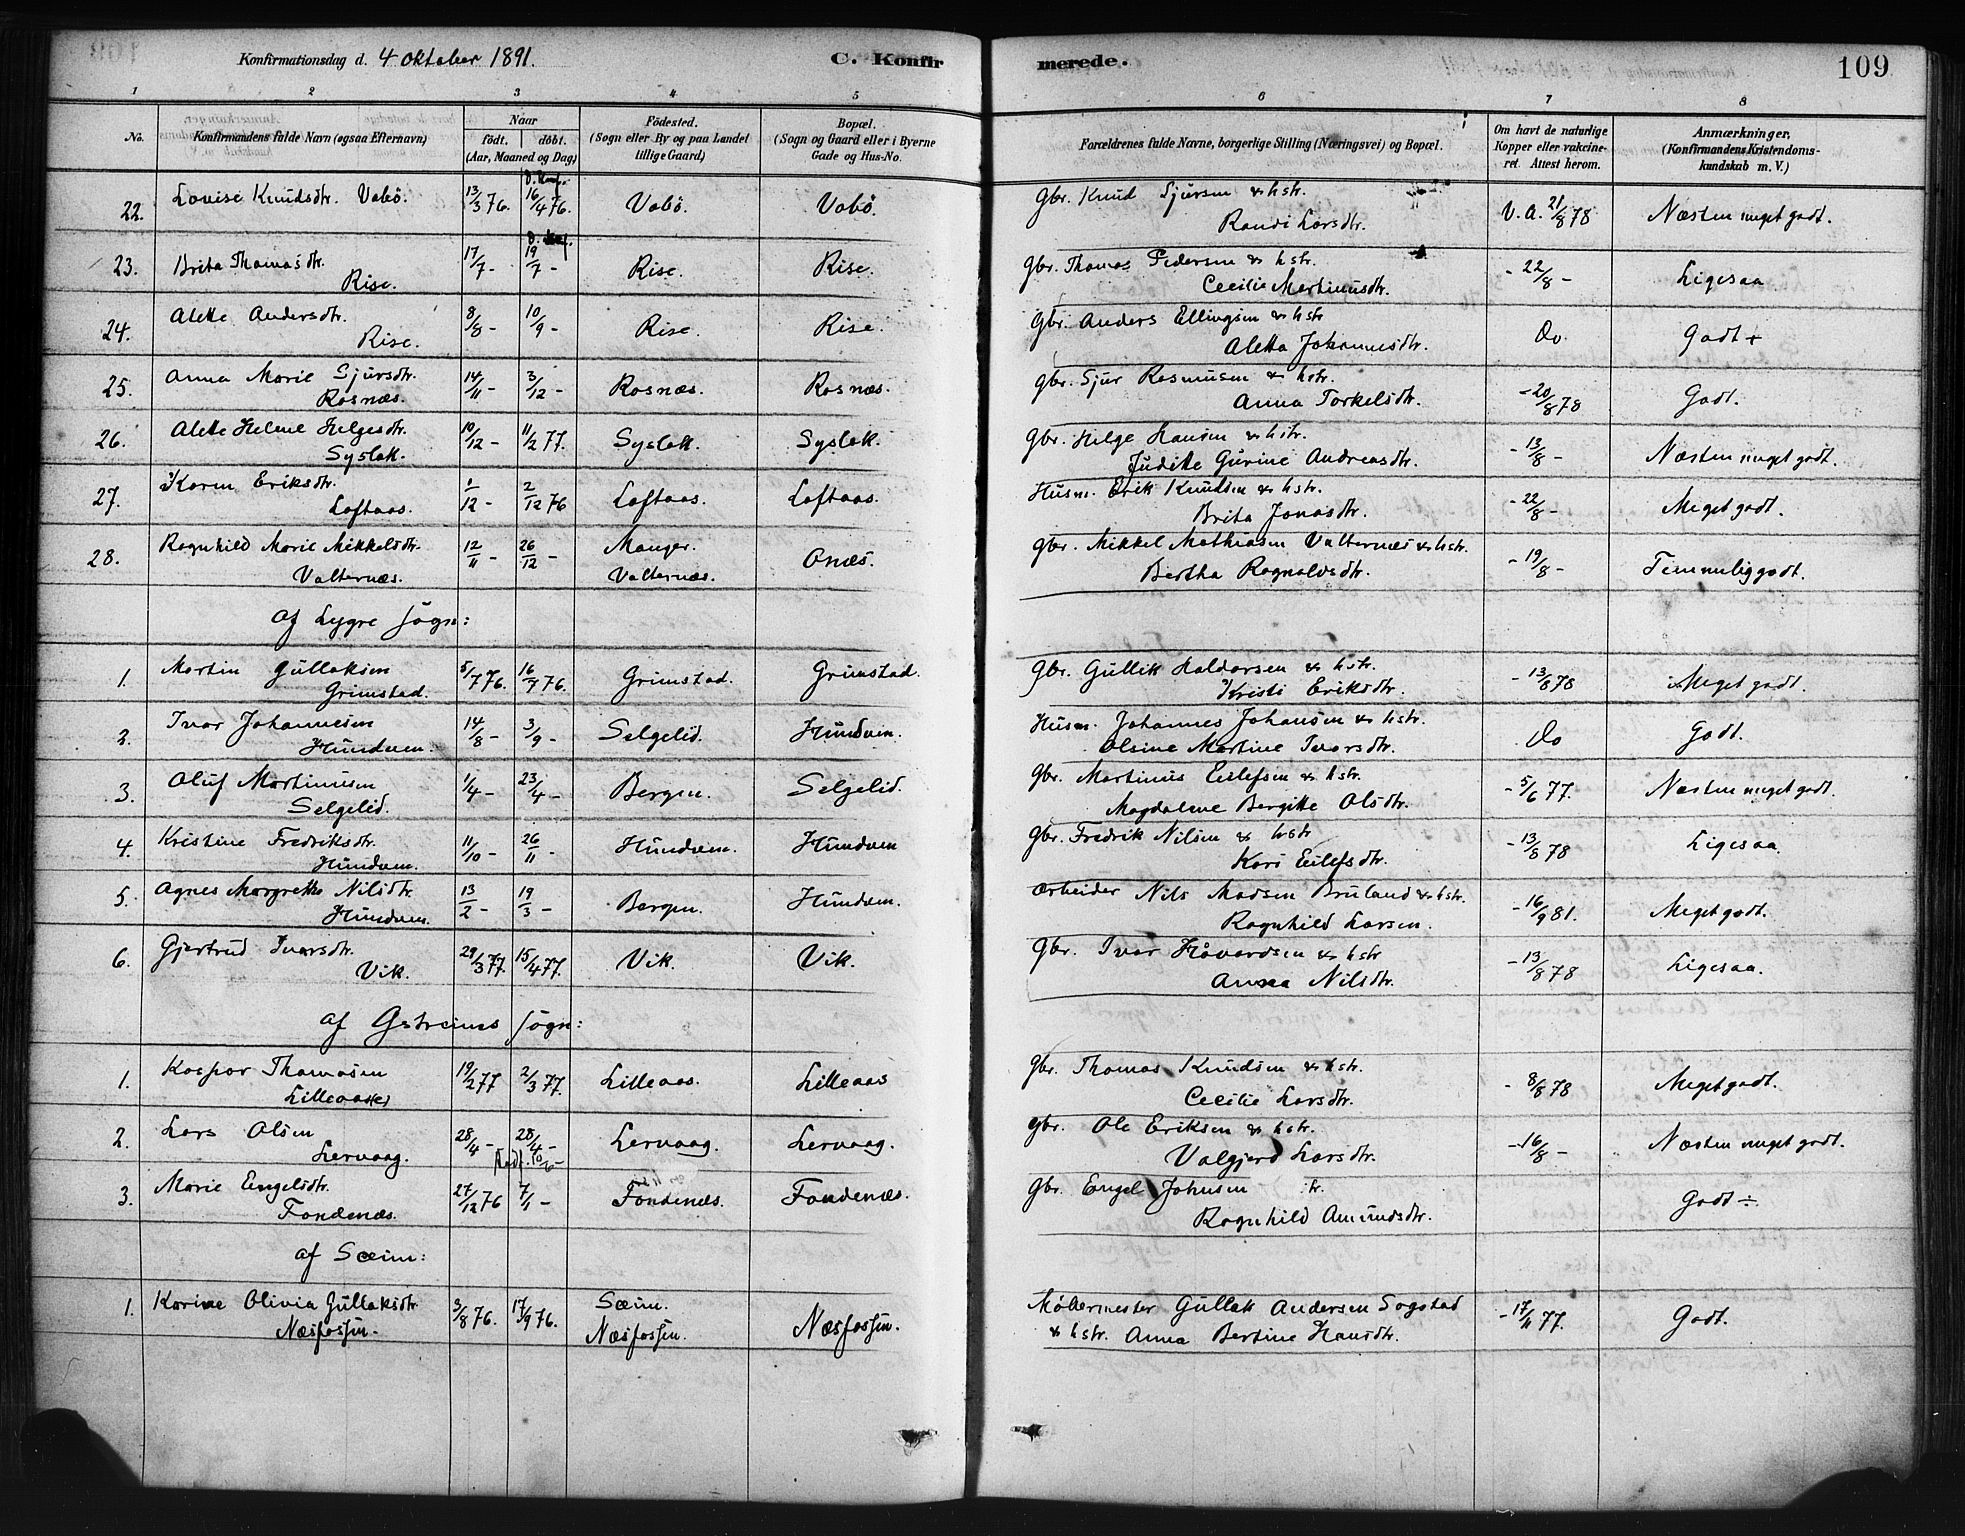 Konfirmationsdag d. 4 Oktober 1891. C. Konfirmerede. 109
1 2 3 4 5 6 7 8
No. Konfirmandens fulde Navn (ogsaa Efternavn) Naar født. døbt. (Aar, Maaned og Dag) Fødested. (Sogn eller By og paa Landet tillige Gaard) Bopæl. (Sogn og Gaard eller i Byerne Gade og Hus-No. Forældrenes fulde Navne, borgerlige Stilling (Næringsvei) og Bopæl. Om havt de naturlige Kopper eller vakcineret. Attest herom. Anmærkninger, (Konfirmandens Kristendomskundskab m. V.)
22. Lovise Knudsdtr. Vabø. 13/3 76. 16/4 76. Vabø. Vabø. Gbr. Knud Sjursen & hstr. Randi Larsdtr. V. A. 21/8 78 Næsten meget godt.
23. Brita Thomasdtr. Rise. 17/7 - 19/7 - Rise. Rise. Gbr. Thomas Pedersen & hstr. Cecilie Martinusdtr. - 22/8 - Ligesaa
24. Alette Andersdtr. Rise. 8/8 - 10/9 - Rise. Rise. Gbr. Anders Ellingsen & hstr Aletta Johannesdtr. Do Godt +
25. Anna Marie Sjursdtr. Rosnæs. 14/11 - 3/12 - Rosnæs. Rosnæs. Gbr. Sjur Rasmusen & hstr. Anna Torkelsdtr. - 20/8 78 Godt.
26. Alette Helene Helgesdtr. Syslak. 10/12 - 11/2 77. Syslak. Syslak. Gbr. Helge Hansen & hstr. Judite Gurine Andreasdtr. - 13/8 - Næsten meget godt.
27. Karen Eriksdtr. Loftaas. 1/12 - 2/12 76 Loftaas. Loftaas. Husm. Erik Knudsen & hstr. Brita Jonasdtr. - 22/8 - Meget godt.
28. Ragnhild Marie Mikkelsdtr. Valternæs. 12/11 - 26/12 - Manger. Valternæs. Onæs. Gbr. Mikkel Mathiasen Valternæs & hstr. Bertha Ragnalvsdtr. - 19/8 - Temmelig godt.
af Lygre sogn:
1. Martin Gullaksen Grimstad. 5/7 76. 16/7 76. Grimstad. Grimstad. Gbr. Gullik Haldorsen & hstr. Kristi Eriksdtr. - 13/8 78 Meget godt.
2. Ivar Johannesen Hundven. 14/8 - 3/9 - Selgelid. Hundven. Husm. Johannes Johansen & hstr. Olsine Martine Ivarsdtr. Do Godt.
3. Oluf Martinusen Selgelid. 1/4 - 23/4 - Bergen. Selgelid. Gbr. Martinus Eilefsen & hstr. Magdalene Bergitte Olsdtr. - 5/6 77. Næsten meget godt.
4. Kristine Fredriksdtr. Hundven. 11/10 - 26/11 - Hundven. Hundven Gbr. Fredrik Nilsen & hstr Kari Eilefsdtr. - 13/8 78 Ligesaa.
5. Agnes Margrethe Nilsdtr Hundven. 13/2 - 19/3 - Bergen. Hundven. Arbeider Nils Madsen Bruland & hstr. Ragnhild Larsen. - 16/9 81. Meget godt.
6. Gjertrud Ivarsdtr. Vik. 29/3 77. 15/4 77. Vik. Vik. Gbr. Ivar Håvardsen & hstr Anna Nilsdtr. - 13/8 78 Ligesaa.
af sogn:
1. Kaspar Thomasen Lilleaas 19/2 77 2/3 77. Lilleaas. Lilleaas Gbr. Thomas Knudsen & hstr. Cecilie Larsdtr. - 8/8 78 Meget godt.
2. Lars Olsen Lervaag. 28/4 - 28/4 - Lervaag. Lervaag. Gbr. Ole Eriksen & hstr. Valgjerd Larsdtr. - 16/8 - Næsten meget godt.
3. Marie Engelsdtr. Fondenæs. 27/12 76 7/1 - Fondenæs. Fondenæs. Gbr. Engel Johnsen Ragnhild Amundsdtr. Godt ÷
af Sæim:
1. Karine Olivia Gullaksdtr. Næsfossen. 3/8 76. 17/9 76. Sæim. Næsfossen. Næsfossen. Møllermester Gullak Andersen Sogstad & hstr. Anna Bertine Hansdtr. - 17/11 77. Godt.